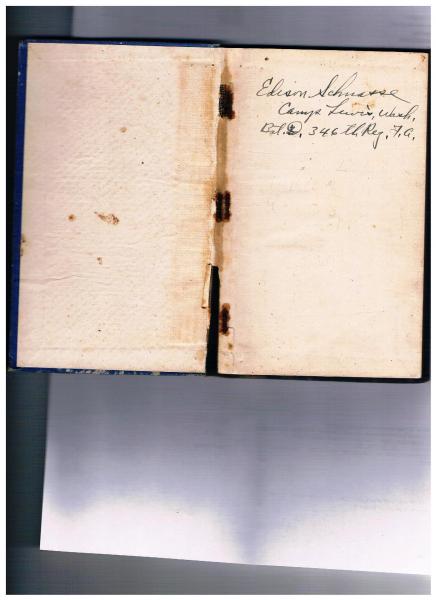 Edison Schnasse
Camp Lewis, Wash.
Bat. D, 346th Reg. F.A.